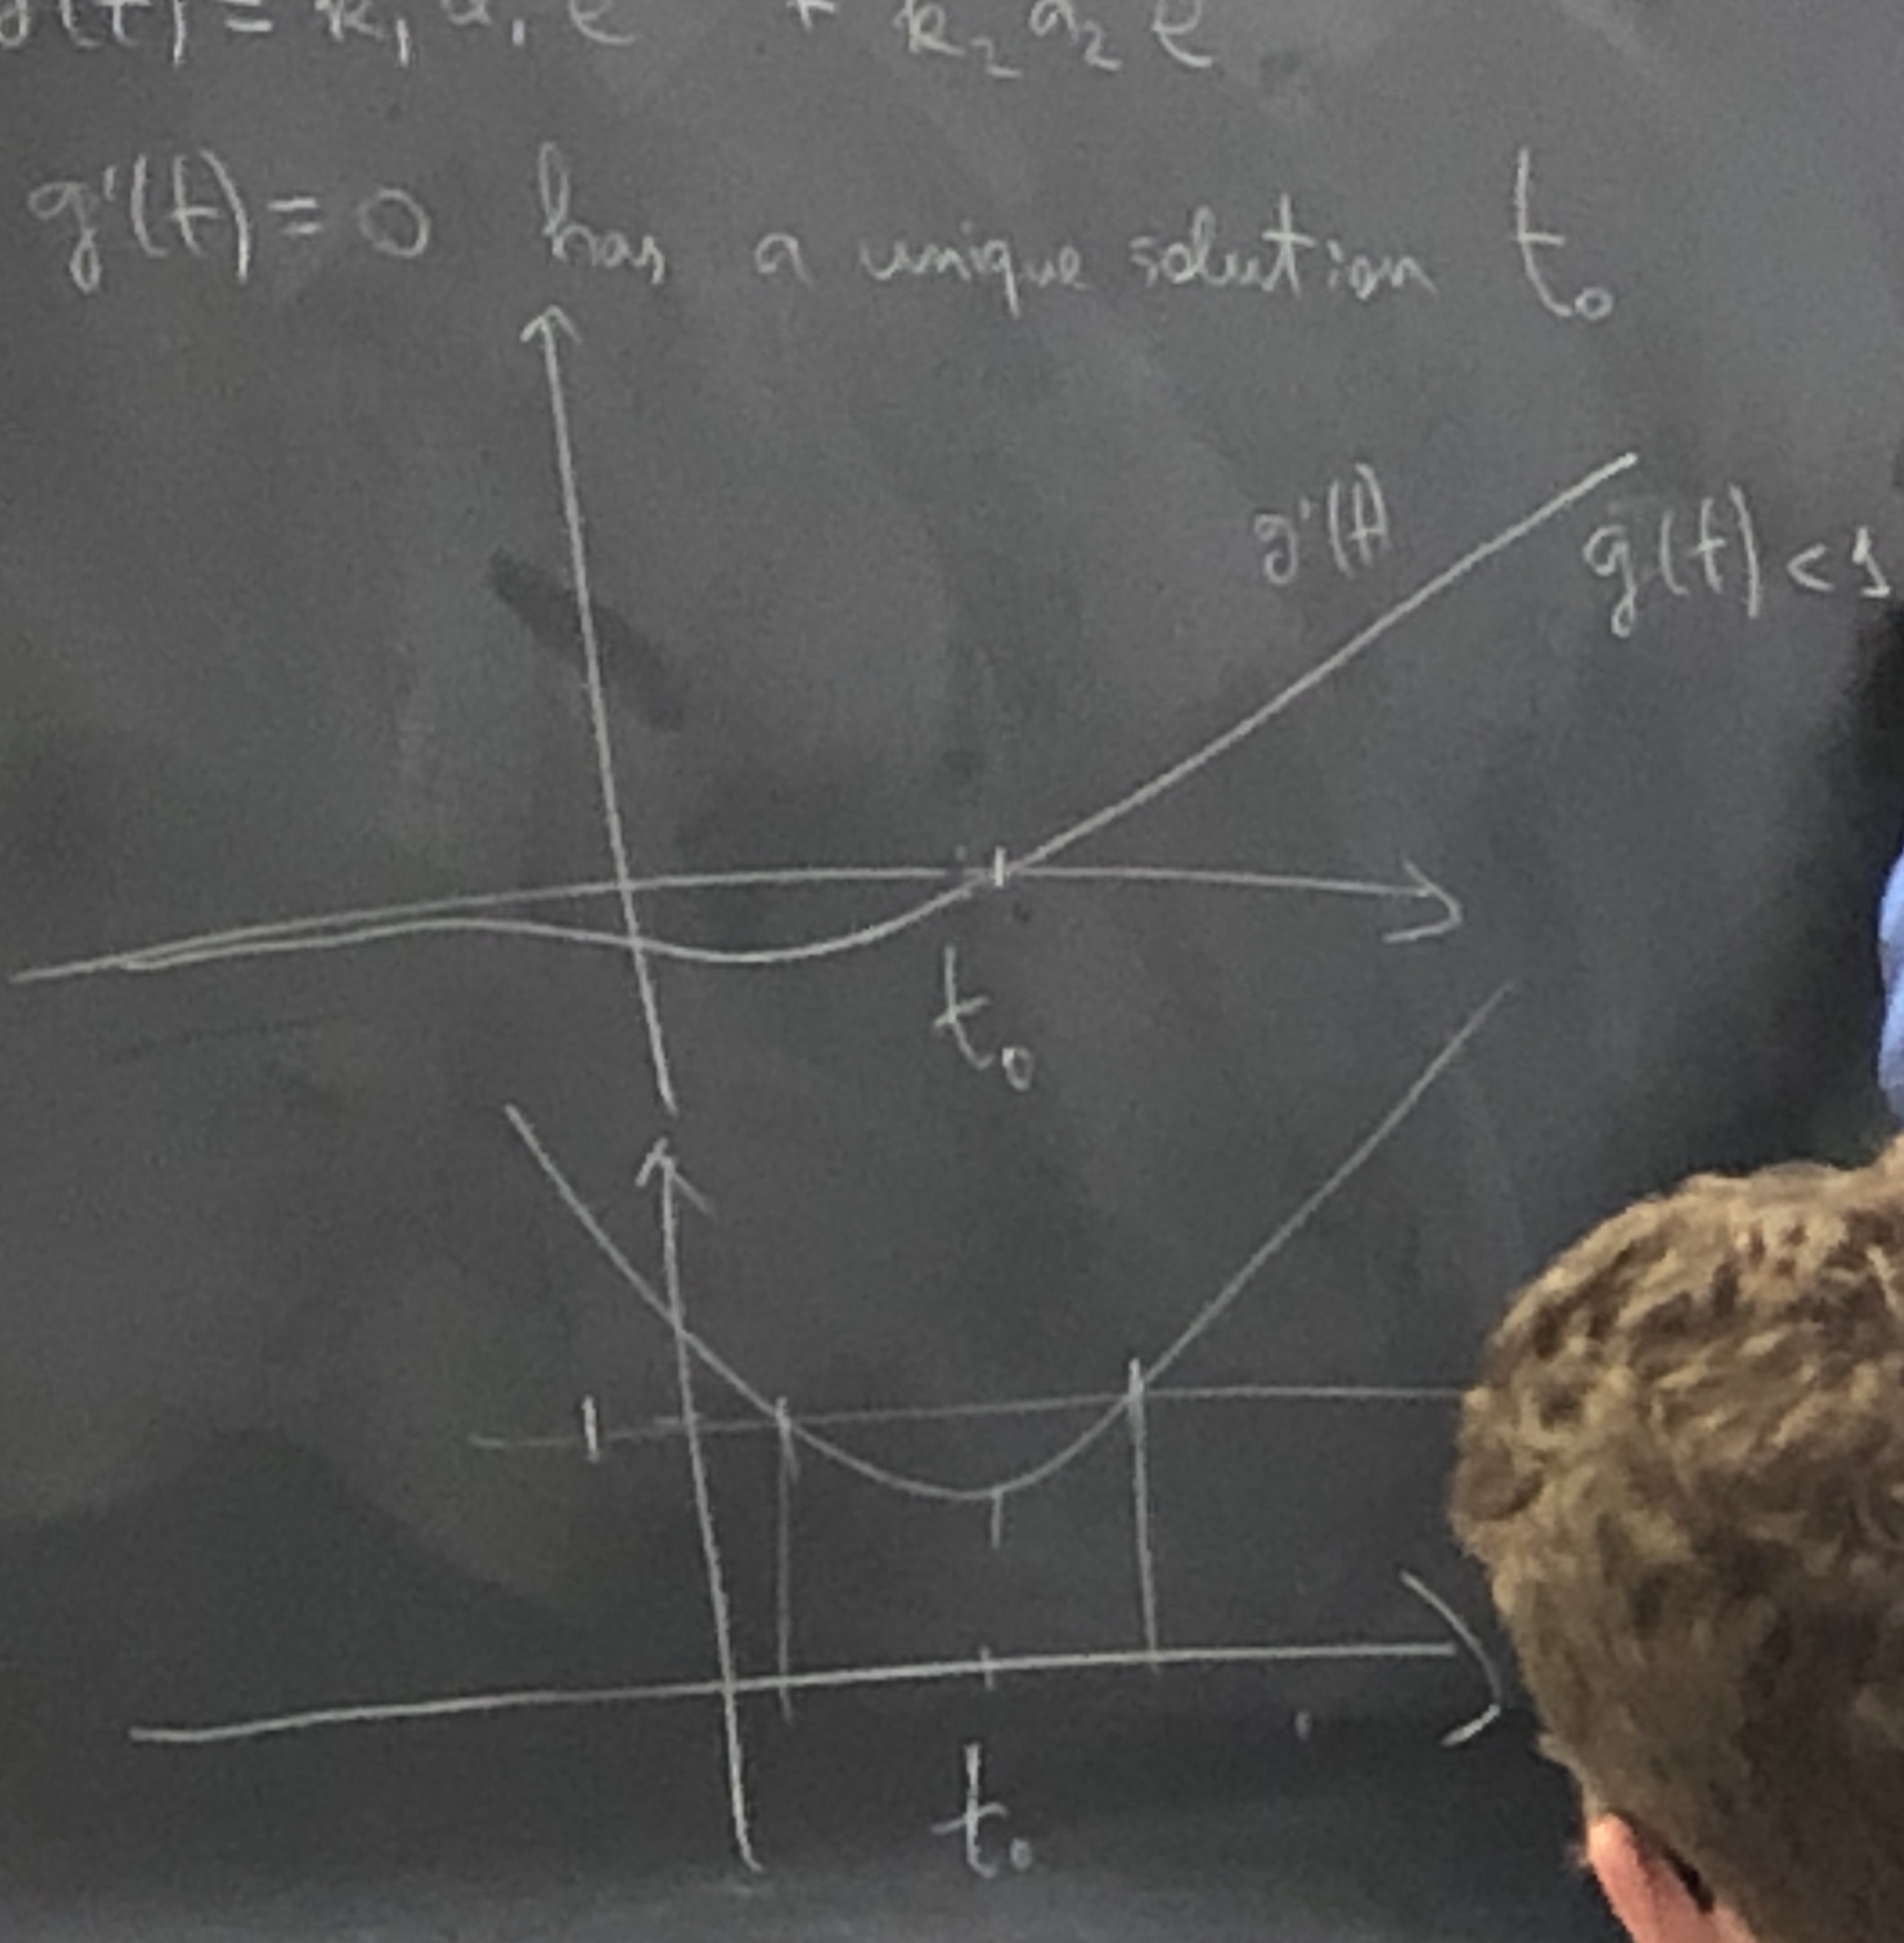 g'(t) = k₁ a₁ e + k₂ a₂ e
g'(t) = 0 has a unique solution t₀
g'(t)
g(t) < 1
t₀
1
t₀